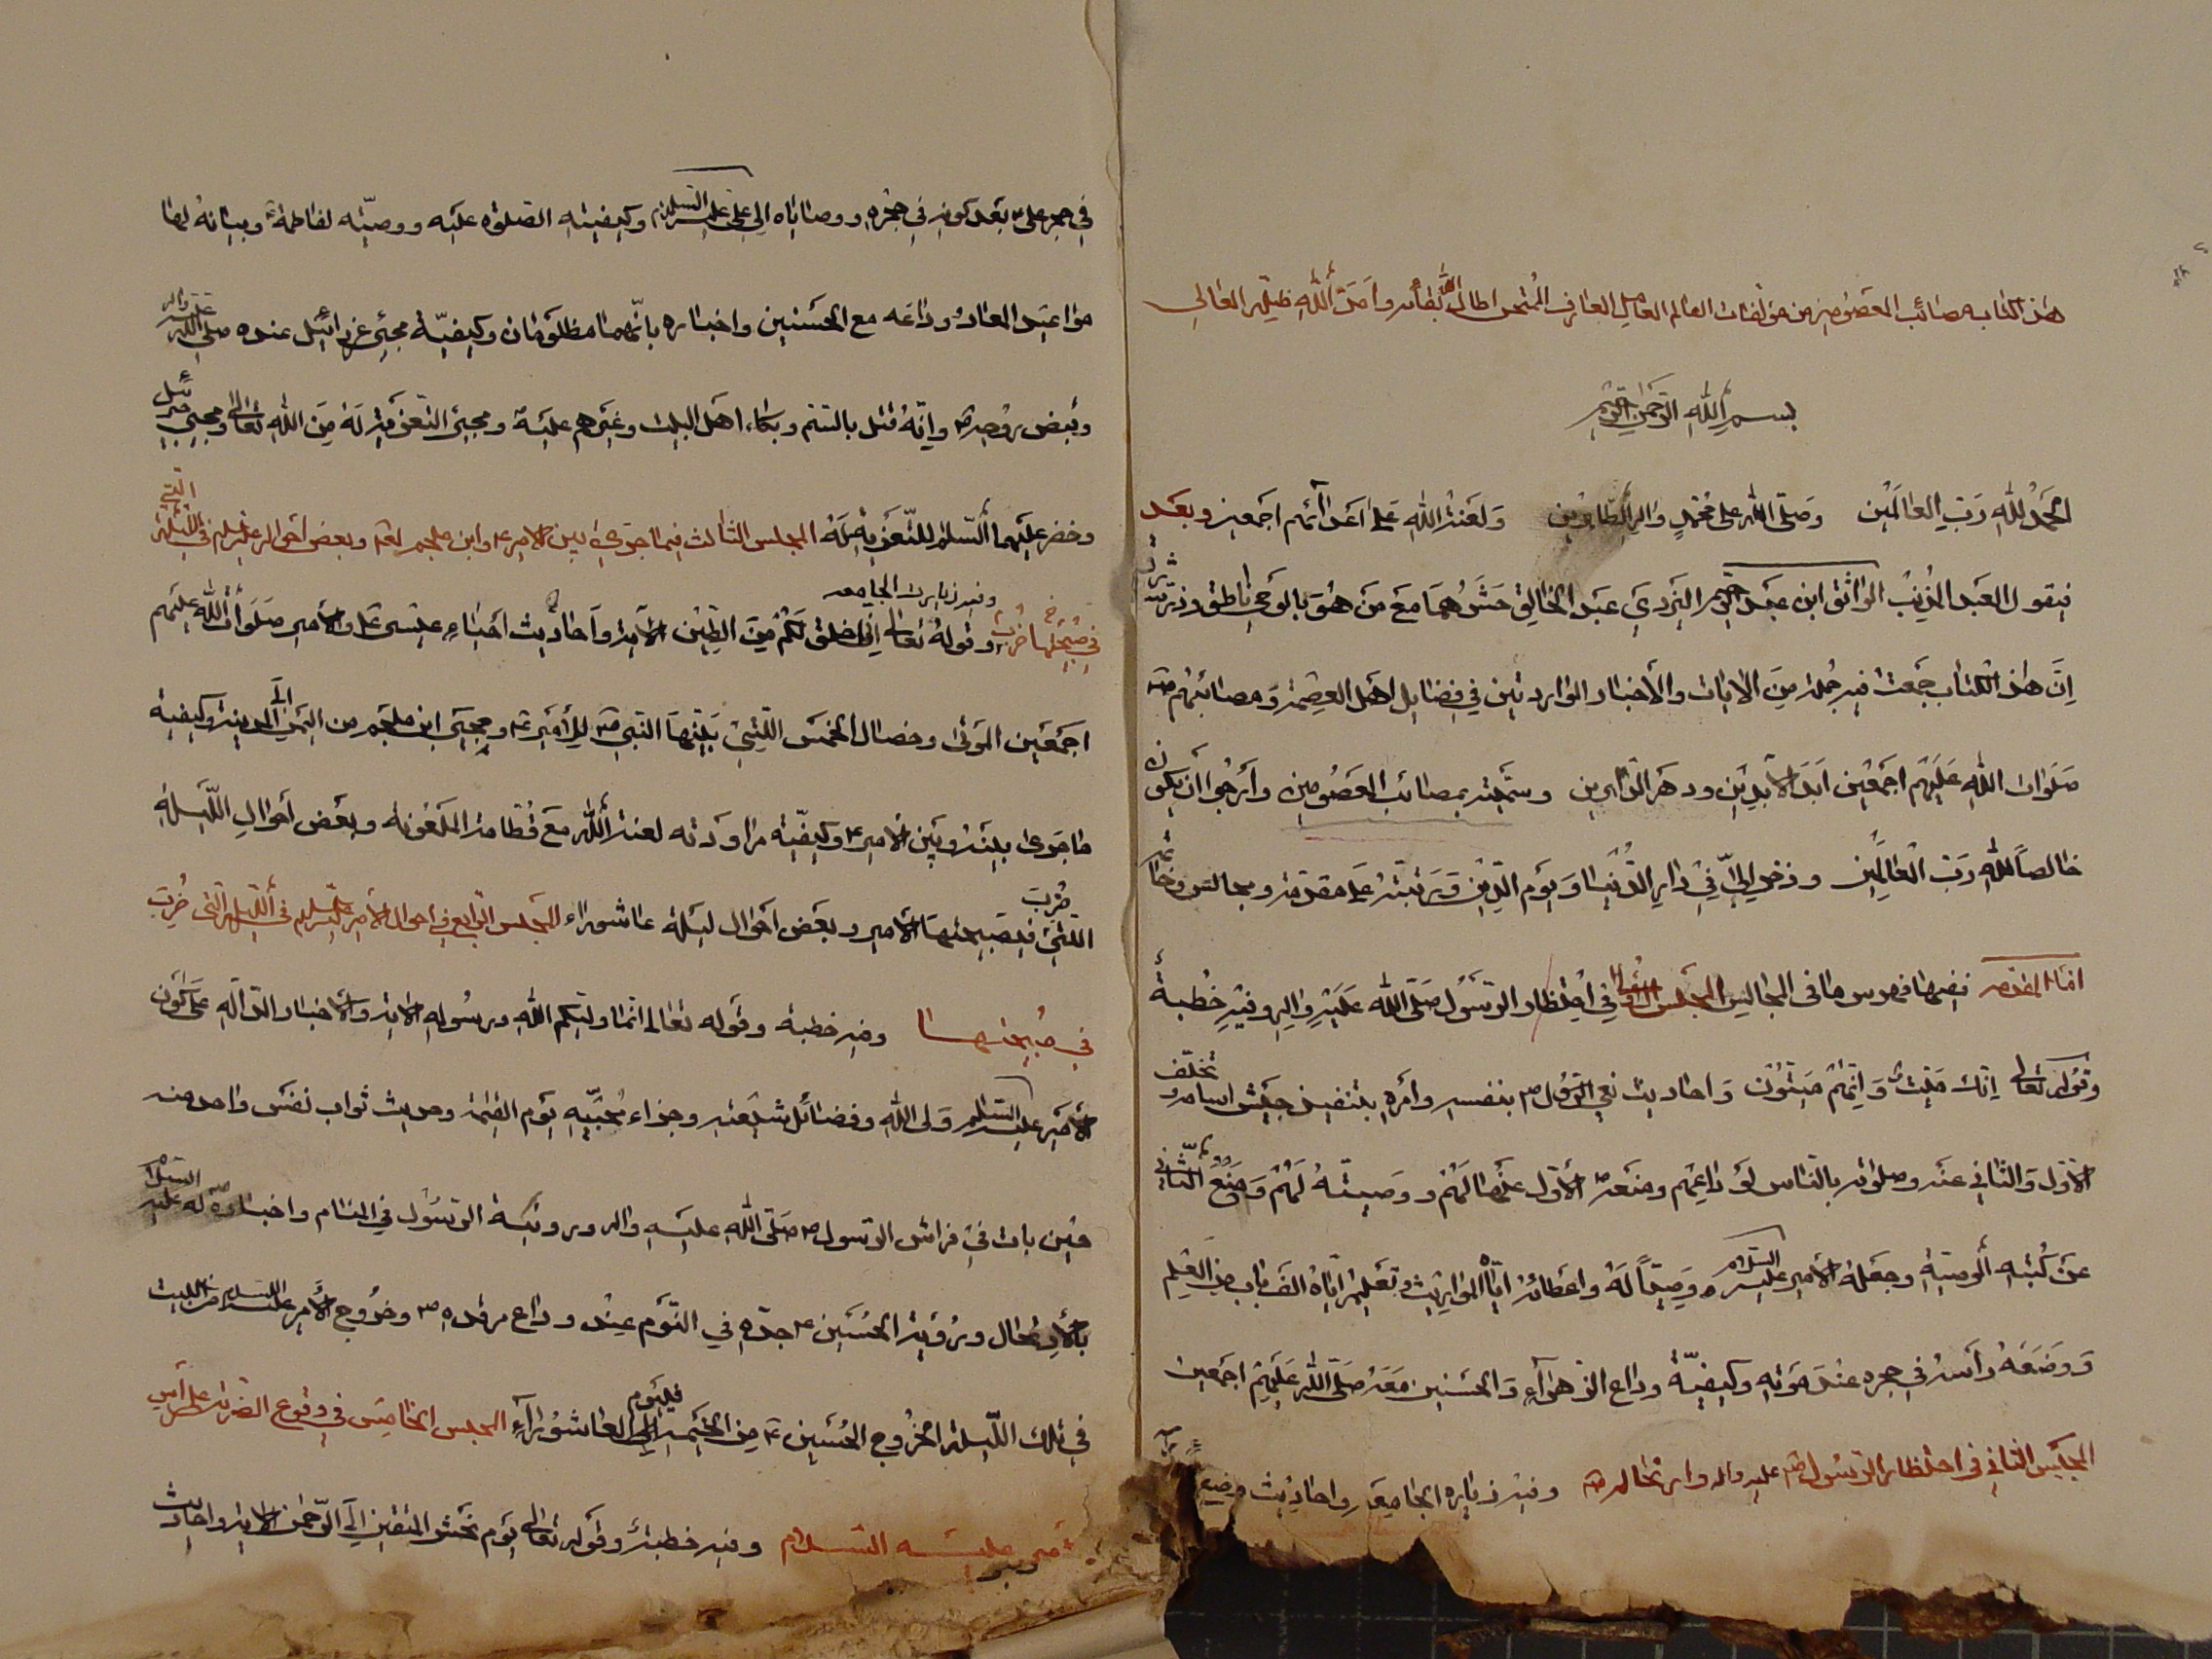 هذا الكتاب مصائب المعصومين من مؤلفات العالم العامل العارف الممتحن اطال الله بقائه وامد الله ظله العالي
بسم الله الرحمن الرحيم
الحمد لله رب العالمين وصلى الله على محمد واله الطاهرين ولعنة الله على اعدائهم اجمعين وبعد
فيقول العبد المذنب الواثق ابن عبد الرحيم اليزدي عبد الخالق حشرهما مع من هو بالوحي ناطق وذريته
ان هذا الكتاب جمعت فيه جملة من الايات والأخبار الواردتين في فضايل اهل العصمة ومصائبهم
صلوات الله عليهم اجمعين ابد الابدين ودهر الداهرين وسميته بمصائب المعصومين وأرجو أن يكون
خالصا لله رب العالمين وذخرا لي في دار الدنيا ويوم الدين ورتبته على مقدمة ومجالس وخاتمة
اما المقدمة ففيها فهرس ما في المجالس المجلس الاول في احتظار الرسول صلى الله عليه واله وفيه خطبة
وقوله تعالى انك ميت وانهم ميتون واحاديث نعي الرسول ص بنفسه وأمره بتنفيذ جيش اسامة وتخلف
الاول والثاني عنه وصلوته بالناس لوداعهم ومنعه الأول عنها لهم ووصيته لهم ومنع الثاني
عن كتبه الوصية وجعله الأمير عليه السلام وصيا له واعطائه اياه المواريث وتعليمه اياه الف باب من العلم
ووضعه رأسه في حجره عند موته وكيفية وداع الزهراء والحسنين معه صلى الله عليهم اجمعين
المجلس الثاني في احتظار الرسول صلى الله عليه واله وارتحاله وفيه زياره الجامعة واحاديث وضع
في حجر على بعد كونه في حجره ووصاياه الى علي عليه السلام وكيفية الصلوة عليه ووصيته لفاطمة وبيانه لها
مواعيد المعاد ووداعه مع الحسنين واخباره بانهما مظلومان وكيفية مجيئ عزرائيل عنده صلى الله عليه واله
وقبض روحه وانه قتل بالسم وبكاء اهل البيت وغيرهم عليه ومجيئ التعزية له من الله تعالى ومجيئ جبرئيل
وخضر عليهما السلام للتعزية له المجلس الثالث فيما جرى بين الامير ع وابن ملجم لعنه وبعض احواله عليه السلام في الليلة التي
في صبيحتها ضرب وفيه زيارت الجامعه وقوله تعالى اني اخلق لكم من الطين الآية وأحاديث أحياء عيسى على والأمير صلوات الله عليهم
اجمعين الموتى وخصال الخمس اللتي بينها النبي للأمير ومجيئ ابن ملجم من اليمن الى المدينة وكيفية
ما جرى بينه وبين الامير وكيفية مراودته لعنة الله مع قطامة الملعونة وبعض أحوال الليلة
اللتي ضرب في صبيحتها الأمير وبعض احوال ليلة عاشوراء المجلس الرابع في احوال الأمير عليه السلام في الليلة التى ضرب
في صبيحتها وفيه خطبة وقوله تعالى انما وليكم الله ورسوله الاية والأخبار الدالة على كون
الأمير عليه السلام ولى الله وفضائل شيعته وجزاء محبيه يوم القيمة وحديث ثواب نفس واحد منه
حين بات في فراش الرسول صلى الله عليه واله ورؤية الرسول في المنام واخباره له عليه السلام
بالأرتحال ورؤية الحسين ع جده في النوم عند وداع مرقده ص وخروج الأمير عليه السلام من البيت
في تلك الليلة الخروج الحسين من الخيمة الى العاشوراء المجلس الخامس في وقوع الضربة على رأس
عليه السلام وفيه خطبة وقوله تعالى يوم نحشر المتقين الى الرحمن الاية واحاديث